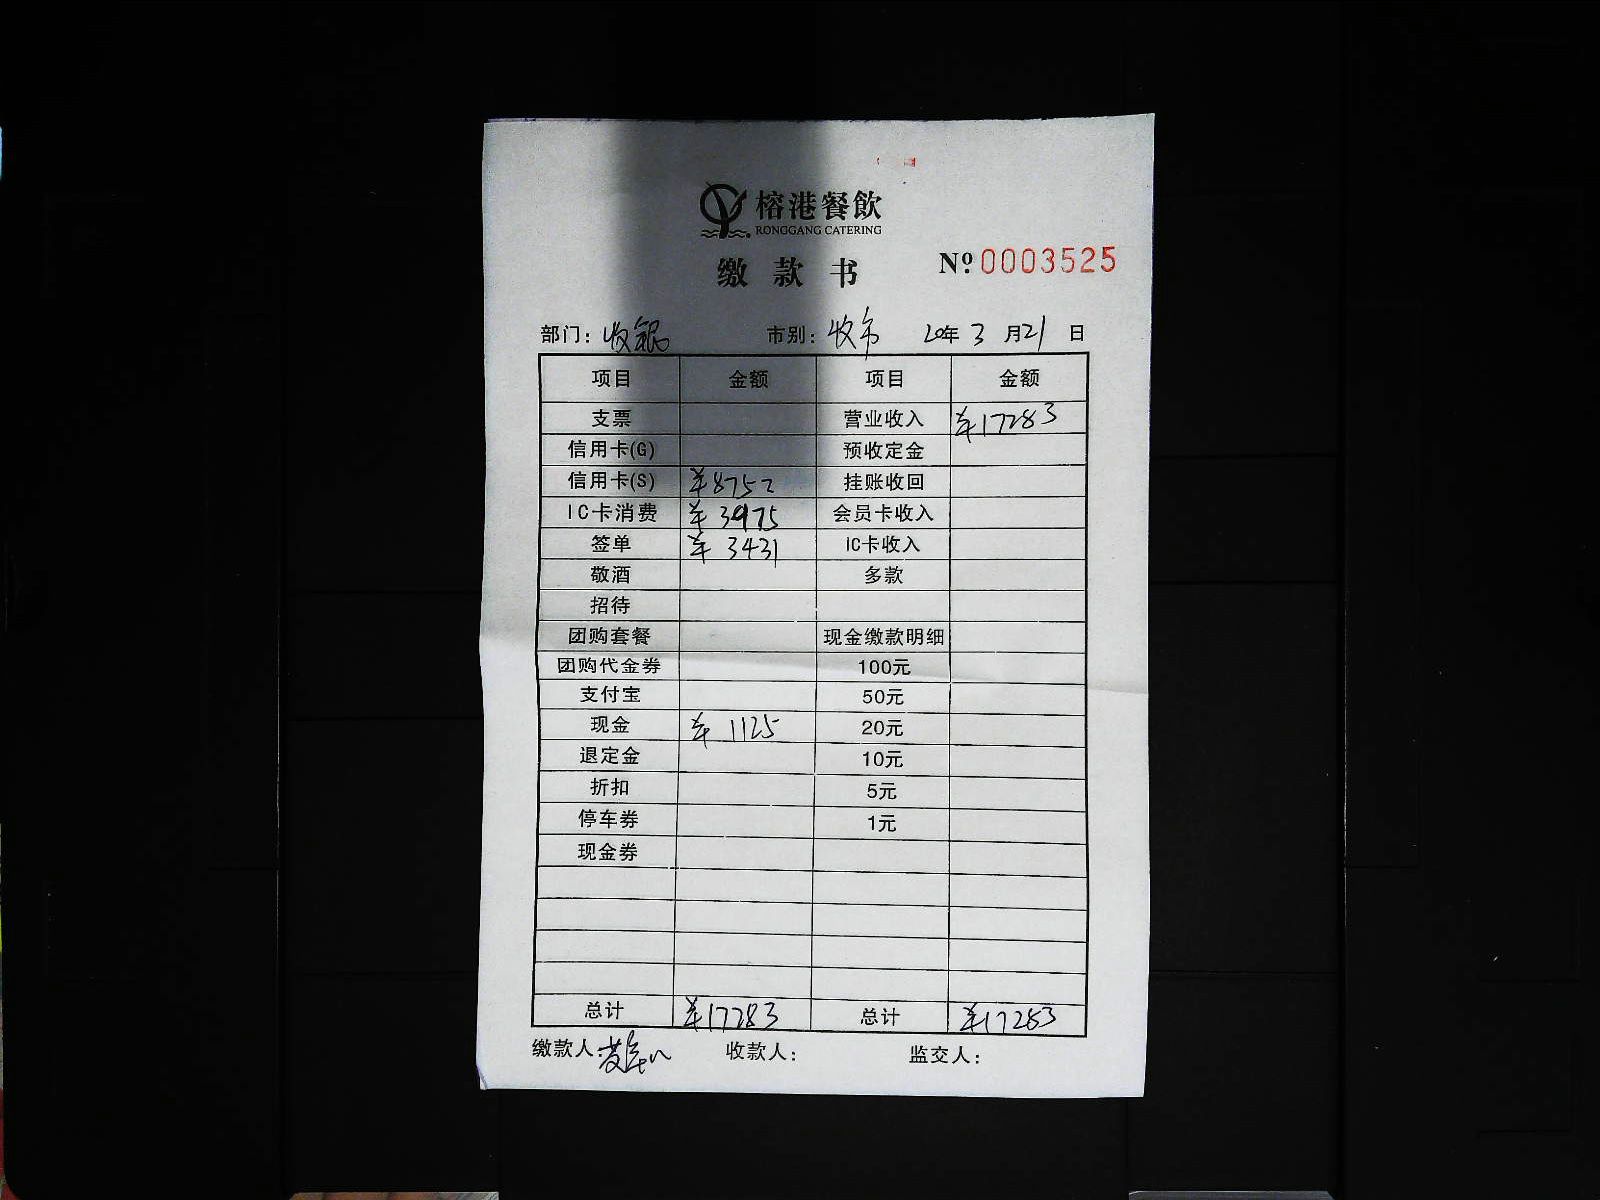 榕港餐飲
RONGGANG CATERING
缴款书 Nº 0003525
部门：收银 市别：收市 20年3月21日
项目 金额 项目 金额
支票 营业收入 ¥17283
信用卡(G) 预收定金
信用卡(S) ¥8752 挂账收回
IC卡消费 ¥3975 会员卡收入
签单 ¥3431 IC卡收入
敬酒 多款
招待
团购套餐 现金缴款明细
团购代金券 100元
支付宝 50元
现金 ¥1125 20元
退定金 10元
折扣 5元
停车券 1元
现金券
总计 ¥17283 总计 ¥17283
缴款人： 收款人： 监交人：